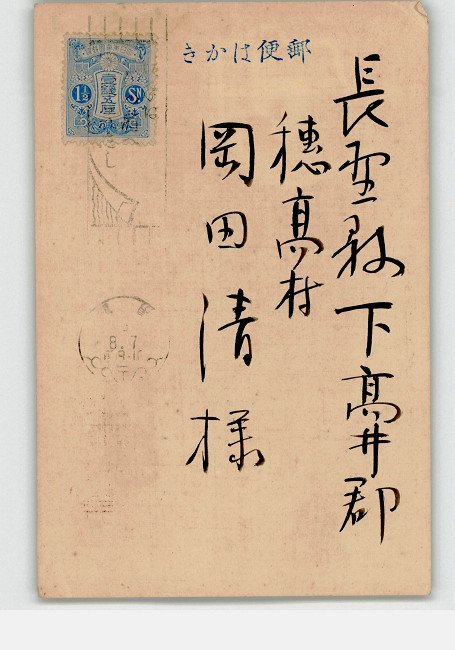 郵便はかき
長野県下高井郡
穂高村
岡田清様
1½ Sn
壹錢五厘
8.7